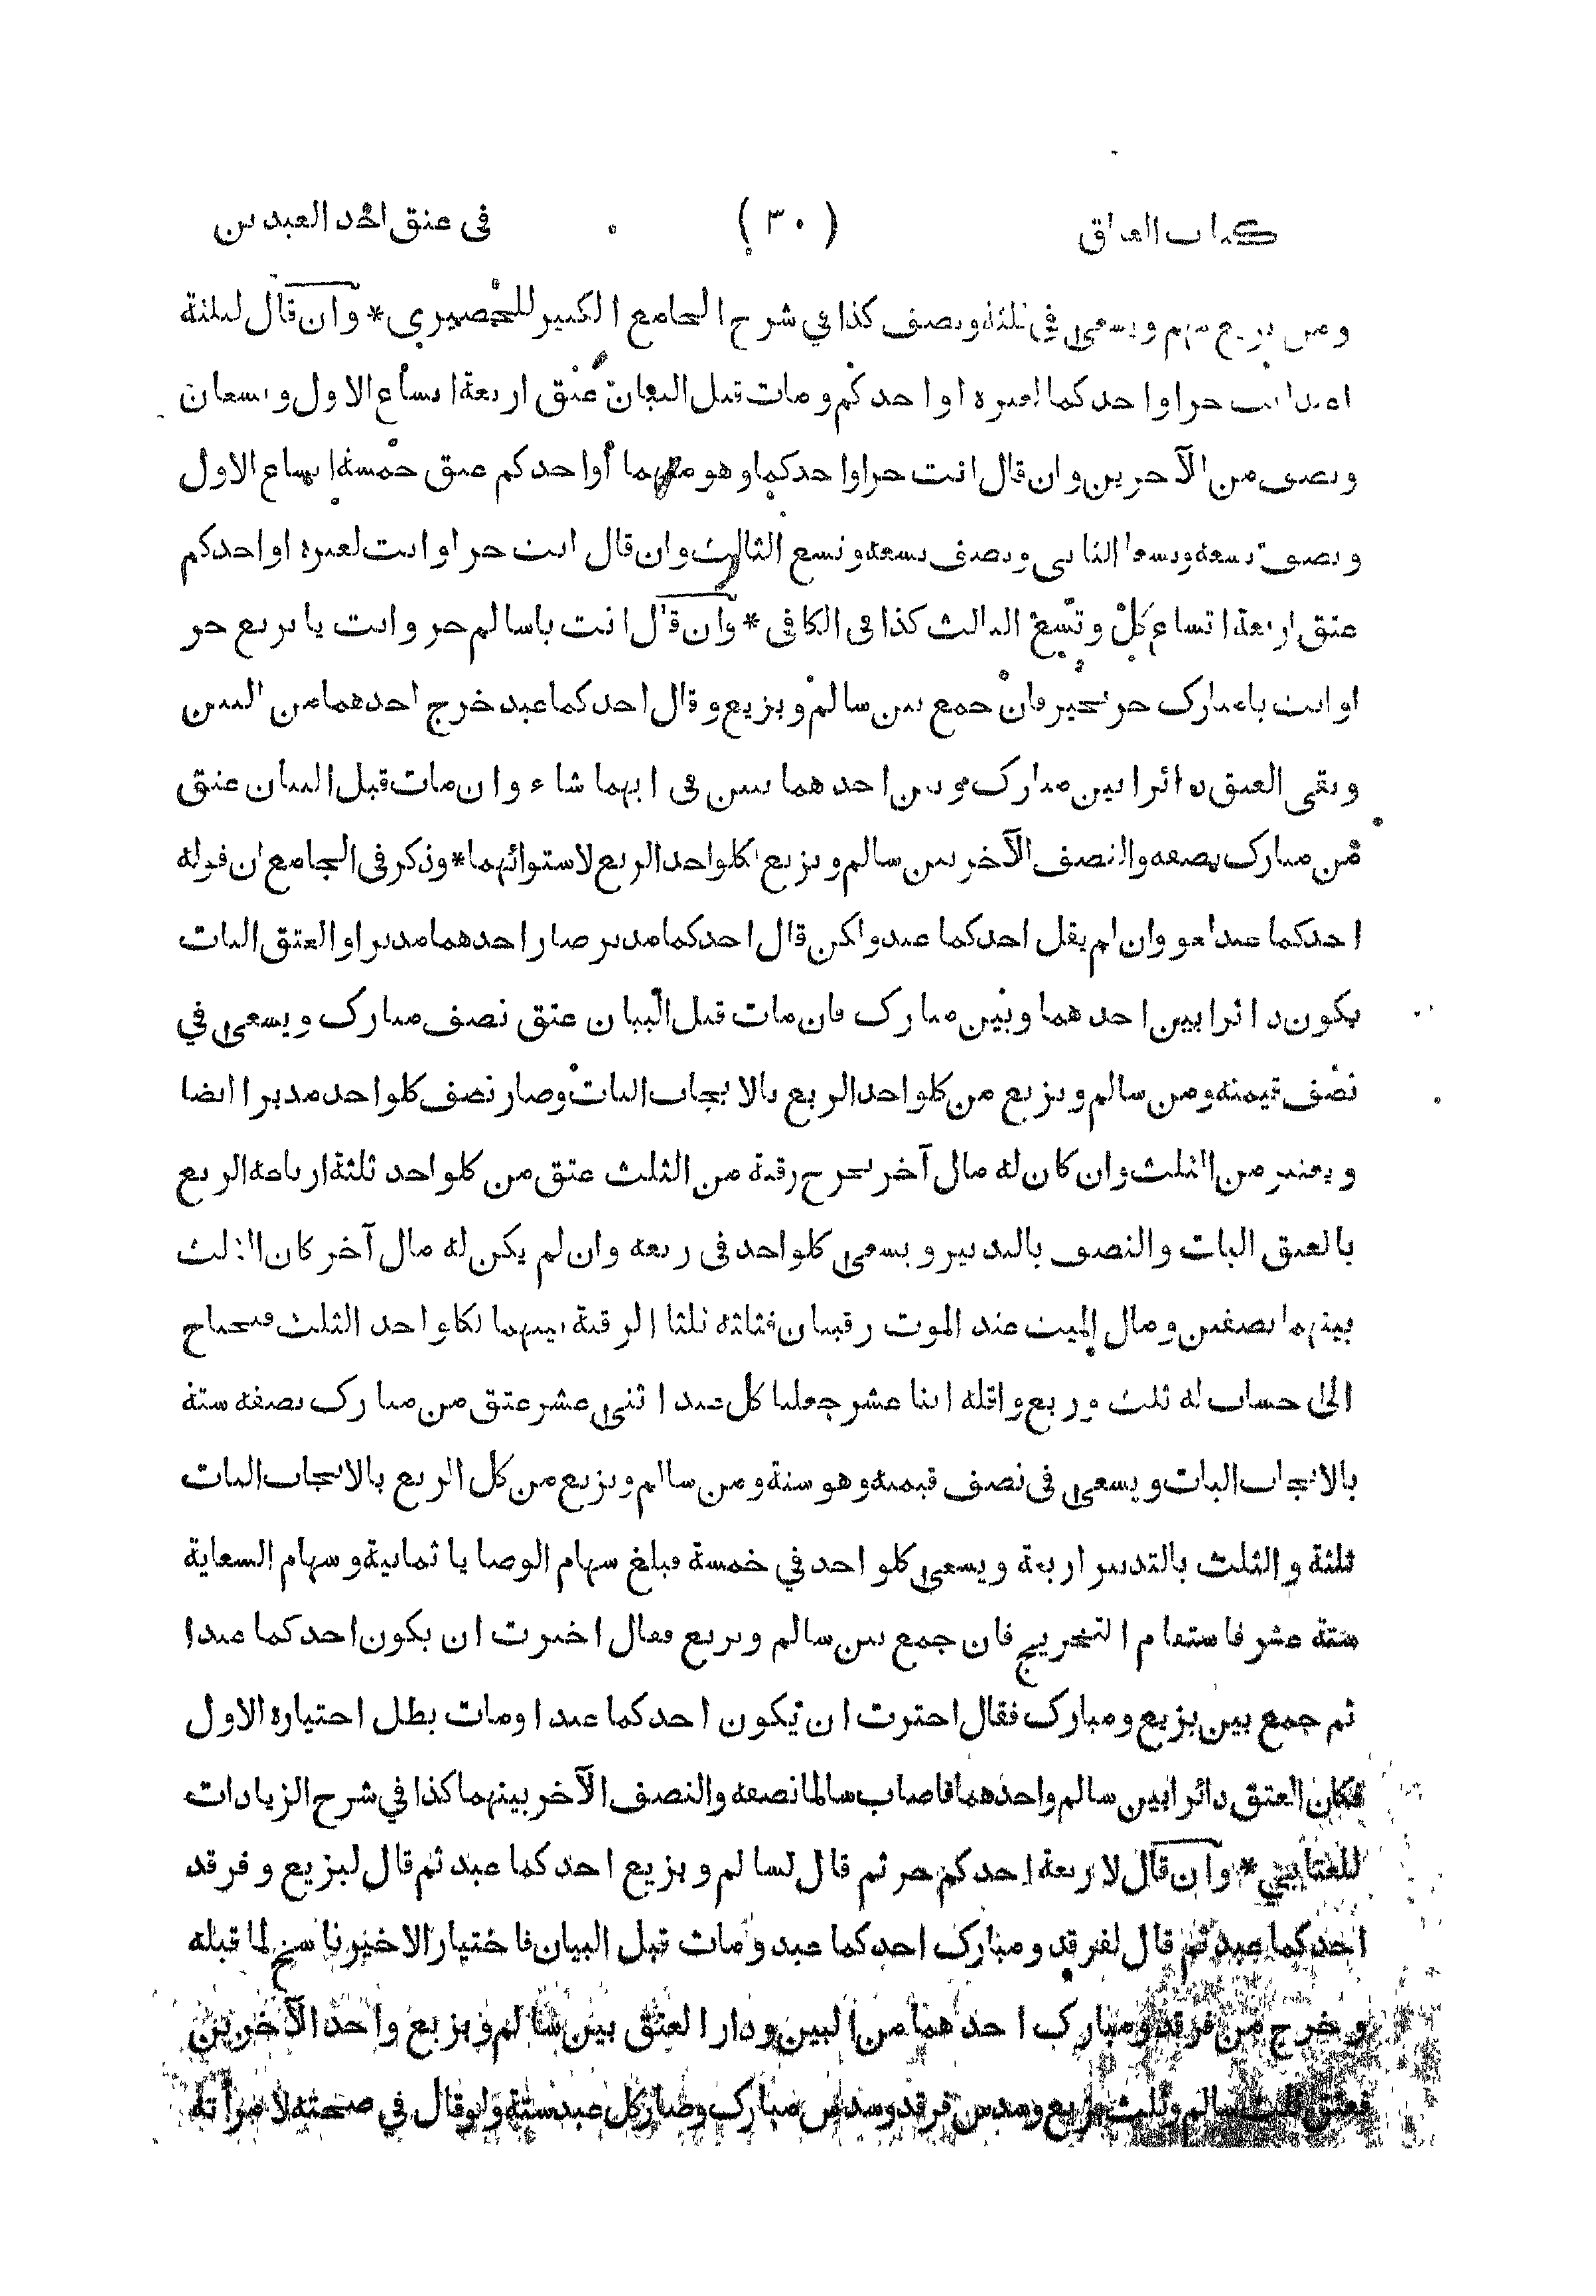 كتاب العتاق (٣٠) في عتق احد العبدين
ومن بزيع سهم ويسعى في ثلثة ونصف كذا في شرح الجامع الكبير للحصيري * وان قال لثلثة
اعبد انت حر او احدكما لغيره او احدكم ومات قبل البيان عتق اربعة اتساع الاول وتسعان
ونصف من الآخرين وان قال انت حر او احدكما وهو منهما او احدكم عتق خمسة اتساع الاول
ونصف تسعه وتسعا الثاني ونصف تسعه وتسع الثالث وان قال انت حر او انت لغيره او احدكم
عتق اربعة اتساع كل وتسع الثالث كذا في الكافي * وان قال انت يا سالم حر وانت يا بزيع حر
او انت يا مبارك حر تخير فان جمع بين سالم وبزيع وقال احدكما عبد خرج احدهما من البين
وبقى العتق دائرا بين مبارك وبين احدهما يبين في ايهما شاء وان مات قبل البيان عتق
من مبارك نصفه والنصف الآخر بين سالم وبزيع لكل واحد الربع لاستوائهما * وذكر في الجامع ان قوله
احدكما عبد لغو وان لم يقل احدكما عبد ولكن قال احدكما مدبر صار احدهما مدبرا و العتق البات
يكون دائرا بين احدهما وبين مبارك فان مات قبل البيان عتق نصف مبارك ويسعى في
نصف قيمته ومن سالم وبزيع من كل واحد الربع بالايجاب البات وصار نصف كل واحد مدبرا ايضا
ويعتبر من الثلث وان كان له مال آخر يخرج رقبة من الثلث عتق من كل واحد ثلثة ارباعه الربع
بالعتق البات والنصف بالتدبير ويسعى كل واحد في ربعه وان لم يكن له مال آخر كان الثلث
بينهما نصفين ومال الميت عند الموت رقبتان فثلثه ثلثا الرقبة بينهما لكل واحد الثلث فيحتاج
الى حساب له ثلث وربع واقله اثنا عشر جعلنا كل عبد اثنى عشر عتق من مبارك نصفه ستة
بالايجاب البات ويسعى في نصف قيمته وهو ستة ومن سالم وبزيع من كل الربع بالايجاب البات
ثلثة والثلث بالتدبير اربعة ويسعى كل واحد في خمسة فبلغ سهام الوصايا ثمانية وسهام السعاية
ستة عشر فاستقام التخريج فان جمع بين سالم وبزيع فقال اخترت ان يكون احدكما عبدا
ثم جمع بين بزيع ومبارك فقال اخترت ان يكون احدكما عبدا ومات بطل اختياره الاول
فكان العتق دائرا بين سالم واحدهما فاصاب سالما نصفه والنصف الآخر بينهما كذا في شرح الزيادات
للعتابي * وان قال لاربعة احدكم حر ثم قال لسالم وبزيع احدكما عبد ثم قال لبزيع وفرقد
احدكما عبد ثم قال لفرقد ومبارك احدكما عبد ومات قبل البيان فاختيار الاخير ناسخ لما قبله
وخرج من فرقد ومبارك احدهما من البين ودار العتق بين سالم وبزيع واحد الآخرين
فعتق ثلث سالم وثلث بزيع وسدس فرقد وسدس مبارك وصار كل عبد ستة ولو قال في صحته لامرأته